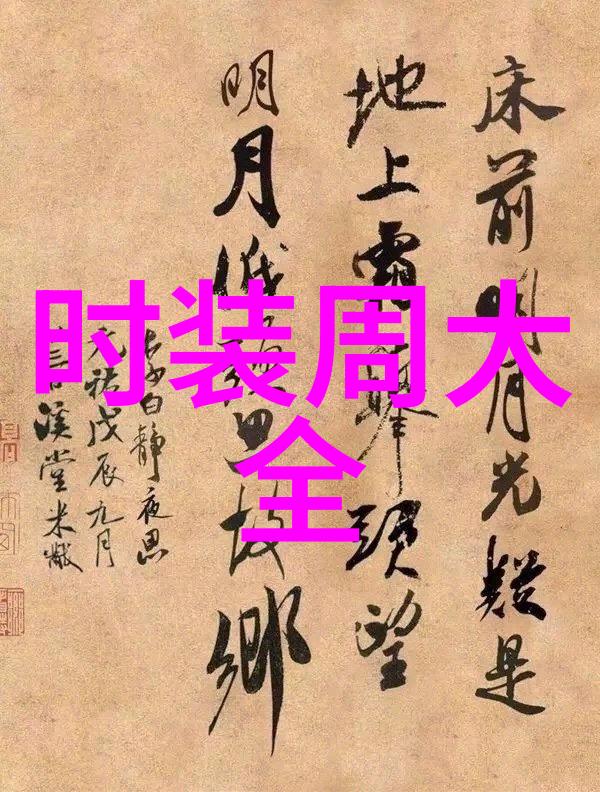 床前明月光疑是
地上霜舉頭望
明月低頭思故鄉
李白靜夜思
元祐戊辰九月
溪堂米黻
时装周大
全